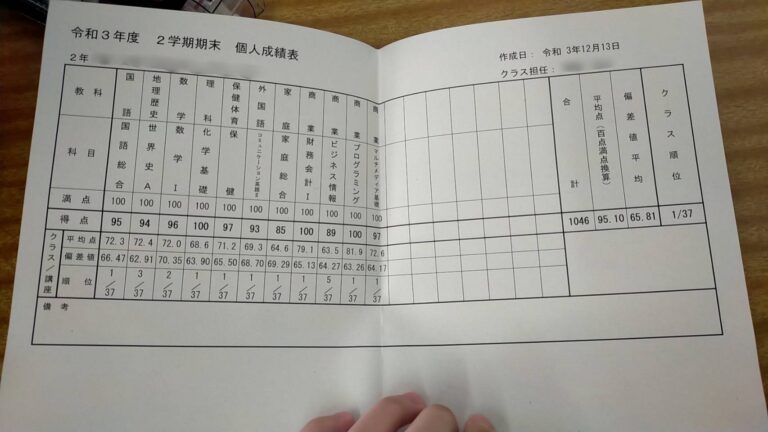 令和３年度　２学期期末　個人成績表
作成日： 令和 3年12月13日
2年
クラス担任：
教科 国語 地理歴史 数学 理科 保健体育 外国語 家庭 商業 商業 商業 商業 合計 平均点（百点満点換算） 偏差値平均 クラス順位
科目 国語総合 世界史A 数学Ⅰ 化学基礎 保健 コミュニケーション英語Ⅱ 家庭総合 財務会計Ⅰ ビジネス情報 プログラミング マルチメディア基礎
満点 100 100 100 100 100 100 100 100 100 100 100
得点 95 94 96 100 97 93 85 100 89 100 97 1046 95.10 65.81 1/37
クラス／講座
平均点 72.3 72.4 72.0 68.6 71.2 69.3 64.6 79.1 63.5 81.9 72.6
偏差値 66.47 62.91 70.35 63.90 65.50 68.70 69.29 65.13 64.27 63.26 64.17
順位 1/37 3/37 2/37 1/37 1/37 1/37 1/37 1/37 5/37 1/37 1/37
備考